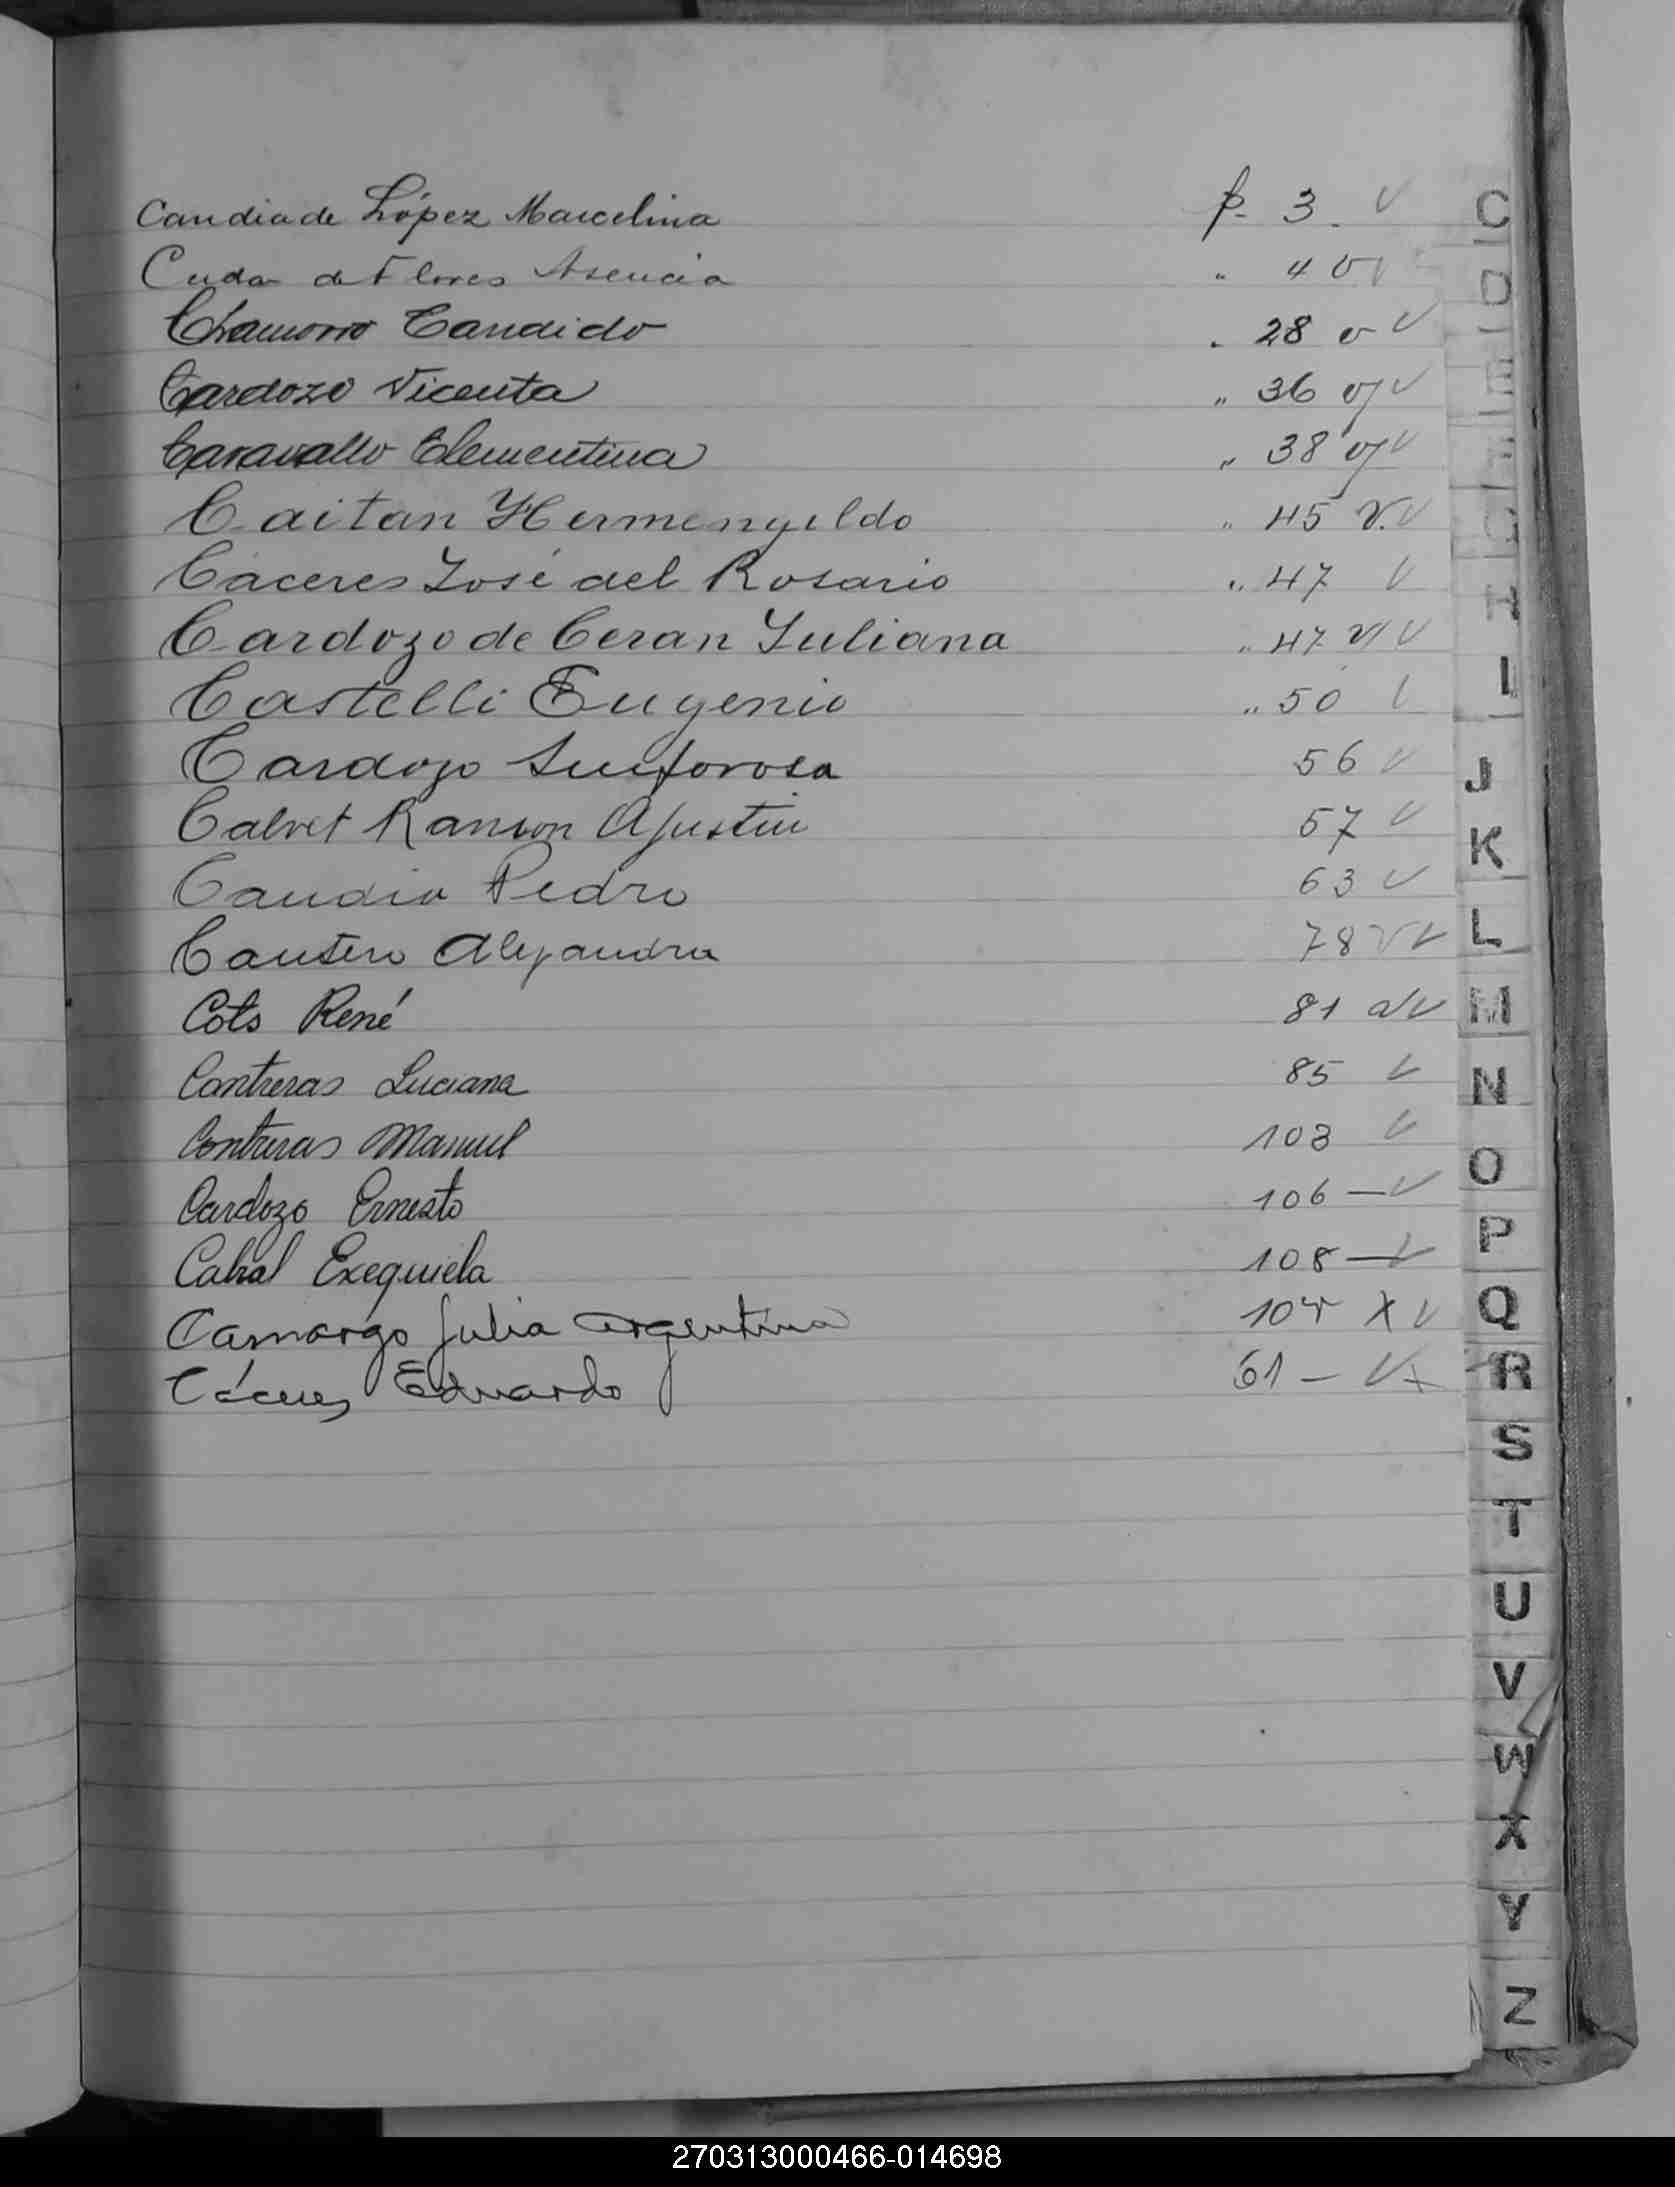 Candia de López Marcelina p. 3. V
Cuda de Flores Asencia " 4 v V
Chamorro Candido " 28 v V
Cardozo Vicenta " 36 v/ V
Caravallo Clementina " 38 v/ V
Caitan Hermengeldo " 45 v. V
Cáceres José del Rosario " 47 V
Cardozo de Ceran Juliana " 47 v/ V
Castelli Eugenio " 50 V
Cardozo Sinforosa 56 V
Calvet Ramon Agustin 57 V
Candia Pedro 63 V
Cantero Alejandra 78 V V
Cots René 81 V
Contreras Luciana 85 V
Contreras Manuel 103 V
Cardozo Ernesto 106 — V
Cabral Exequiela 108 — V
Camargo Julia Argentina X V
Cáceres Eduardo 61 — V x
C
D
E
F
G
H
I
J
K
L
M
N
O
P
Q
R
S
T
U
V
W
X
Y
Z
270313000466-014698